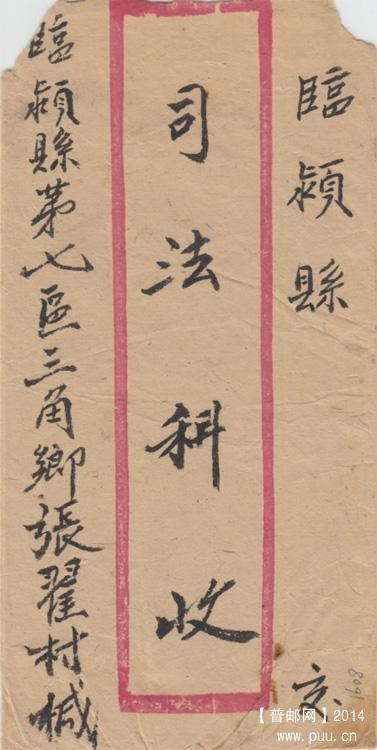 臨潁縣
司法科收
臨潁縣第七區三角鄉張翟村槭
8091
【普邮网】2014
www.puu.cn